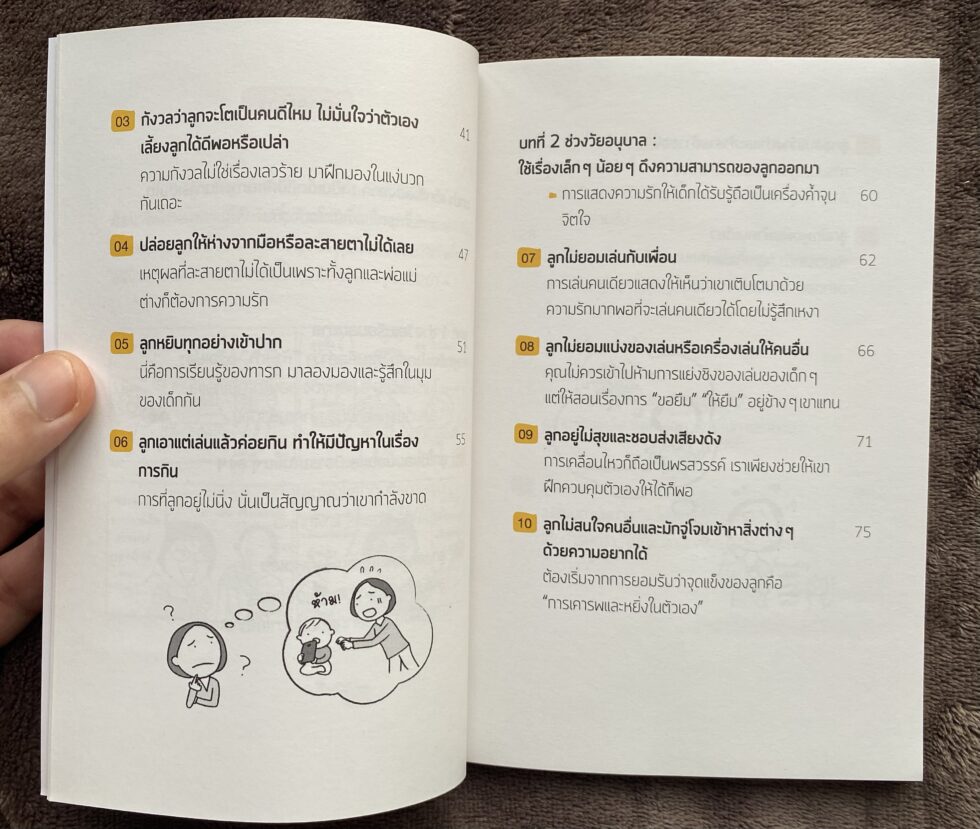 03 กังวลว่าลูกจะโตเป็นคนดีไหม ไม่มั่นใจว่าตัวเอง 41
เลี้ยงลูกได้ดีพอหรือเปล่า
ความกังวลไม่ใช่เรื่องเลวร้าย มาฝึกมองในแง่บวก
กันเถอะ
04 ปล่อยลูกให้ห่างจากมือหรือละสายตาไม่ได้เลย 47
เหตุผลที่ละสายตาไม่ได้เป็นเพราะทั้งลูกและพ่อแม่
ต่างก็ต้องการความรัก
05 ลูกหยิบทุกอย่างเข้าปาก 51
นี่คือการเรียนรู้ของทารก มาลองมองและรู้สึกในมุม
ของเด็กกัน
06 ลูกเอาแต่เล่นแล้วค่อยกิน ทำให้มีปัญหาในเรื่อง 55
การกิน
การที่ลูกอยู่ไม่นิ่ง นั่นเป็นสัญญาณว่าเขากำลังขาด
ห้าม!
?
?
บทที่ 2 ช่วงวัยอนุบาล :
ใช้เรื่องเล็ก ๆ น้อย ๆ ดึงความสามารถของลูกออกมา
การแสดงความรักให้เด็กได้รับรู้ถือเป็นเครื่องค้ำจุน 60
จิตใจ
07 ลูกไม่ยอมเล่นกับเพื่อน 62
การเล่นคนเดียวแสดงให้เห็นว่าเขาเติบโตมาด้วย
ความรักมากพอที่จะเล่นคนเดียวได้โดยไม่รู้สึกเหงา
08 ลูกไม่ยอมแบ่งของเล่นหรือเครื่องเล่นให้คนอื่น 66
คุณไม่ควรเข้าไปห้ามการแย่งชิงของเล่นของเด็ก ๆ
แต่ให้สอนเรื่องการ “ขอยืม” “ให้ยืม” อยู่ข้าง ๆ เขาแทน
09 ลูกอยู่ไม่สุขและชอบส่งเสียงดัง 71
การเคลื่อนไหวก็ถือเป็นพรสวรรค์ เราเพียงช่วยให้เขา
ฝึกควบคุมตัวเองให้ได้ก็พอ
10 ลูกไม่สนใจคนอื่นและมักจู่โจมเข้าหาสิ่งต่าง ๆ 75
ด้วยความอยากได้
ต้องเริ่มจากการยอมรับว่าจุดแข็งของลูกคือ
“การเคารพและหยิ่งในตัวเอง”